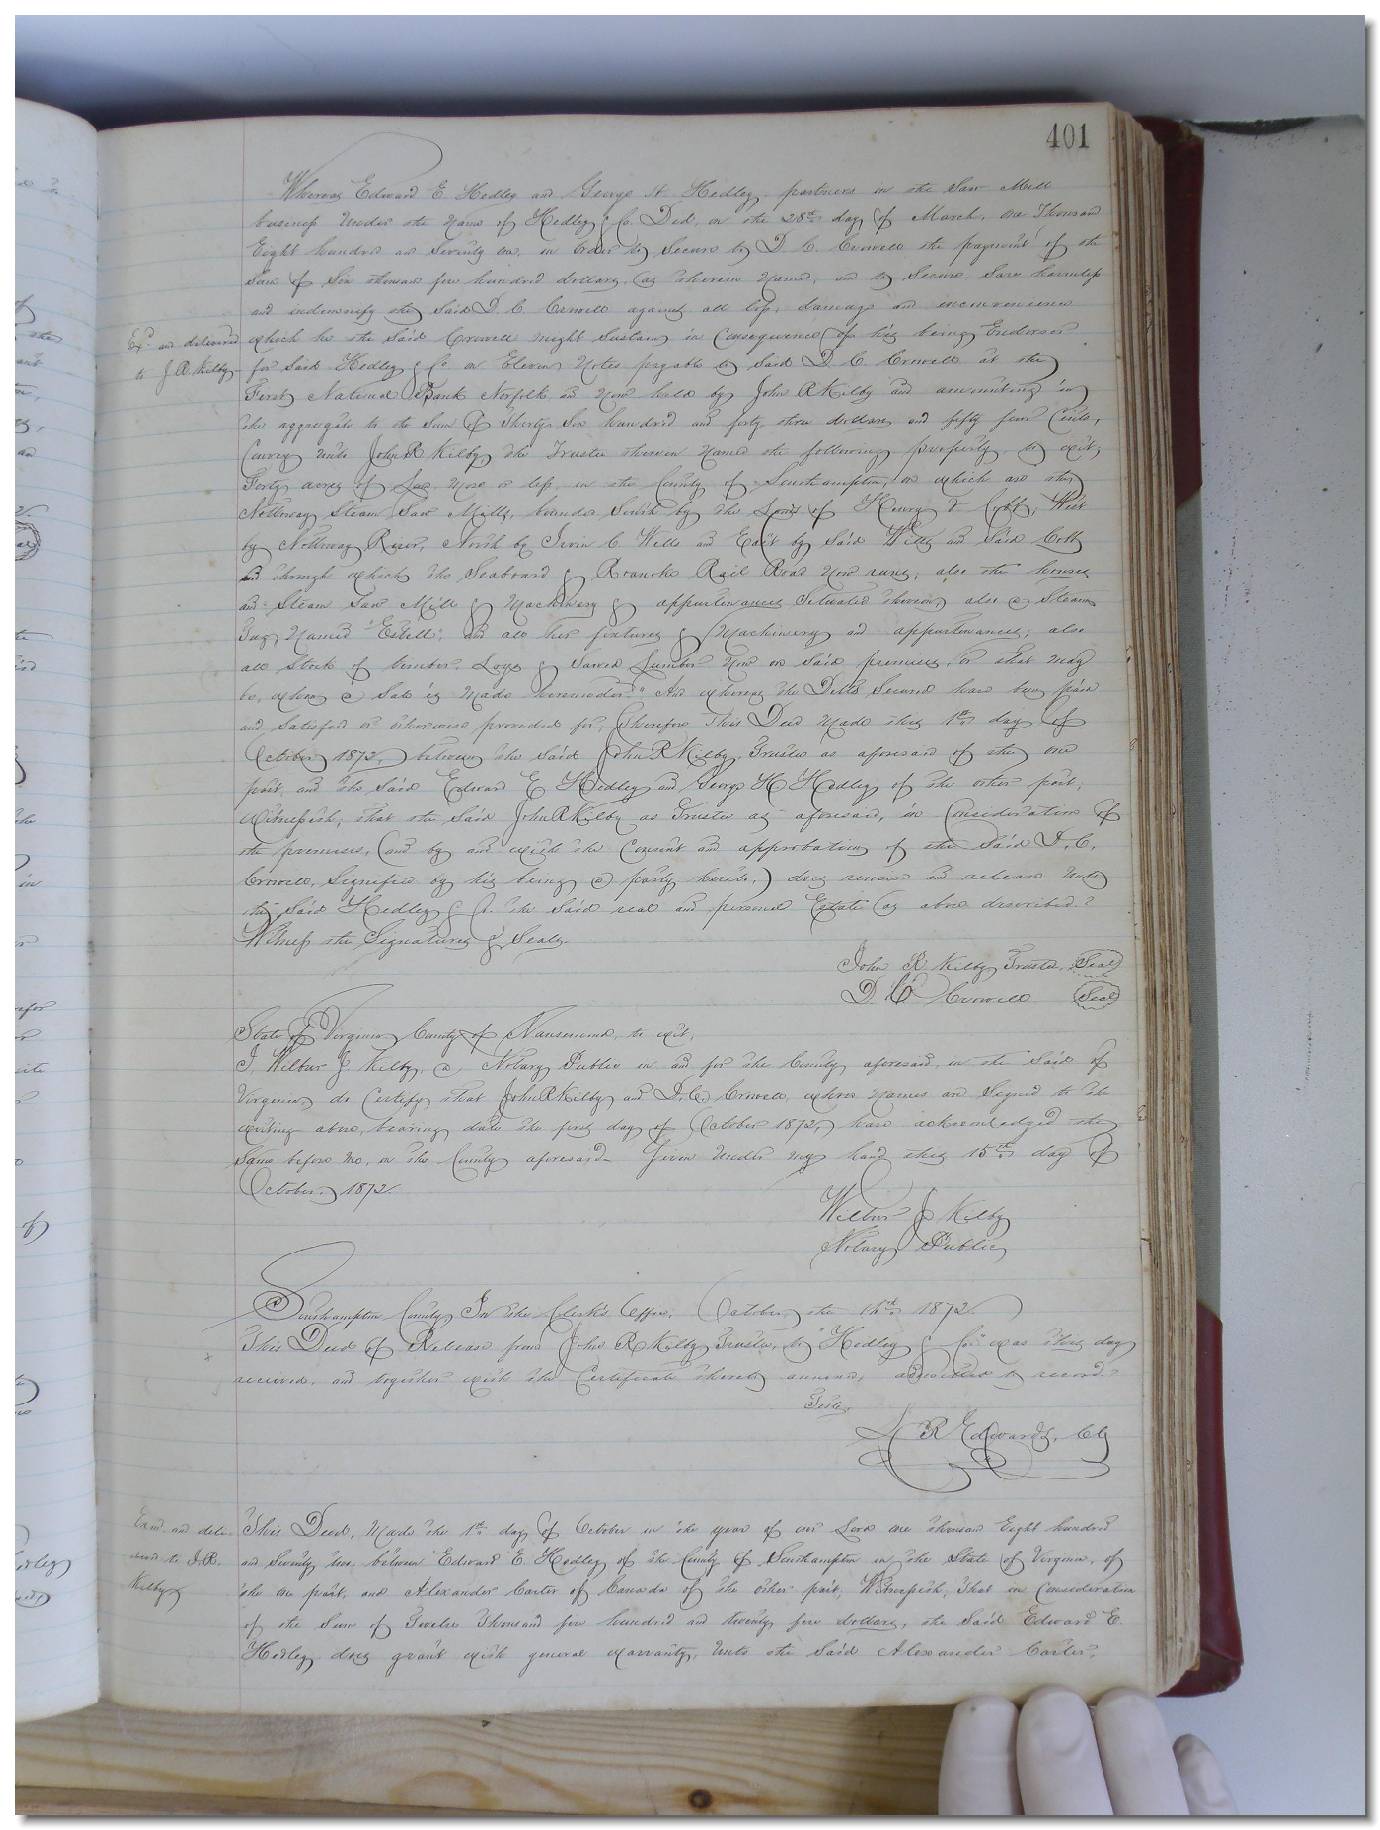 401
Whereas Edward E Hedley and George H Hedley, partners in the Saw Mill
business under the name of Hedley & Co. Did, on the 28th day of March, one Thousand
Eight hundred and Seventy one, in order to Secure to D. C. Crowell the payment of the
Sum of Six thousand five hundred dollars, (as therein named, and to Secure Save harmless
and indemnify the Said D. C. Crowell against all loss, damage and inconvenience
Exd and delivered
to J R Kilby
which he the Said Crowell might Sustain in Consequence of his being Endorser
for Said Hedley & Co on Eleven Notes payable to Said D. C. Crowell at the
First National Bank Norfolk and now held by John R Kilby and amounting in
the aggregate to the Sum of Thirty Six hundred and forty three dollars and fifty four Cents,
Convey unto John R Kilby, the Trustee therein named the following property, to wit,
Forty acres of Land more or less, in the County of Southampton, on which are the
Nottoway Steam Saw Mills, bounded South by the Land of Henry T Cobb, West
by Nottoway River, North by Irvin C. Wills and East by Said Wills and Said Cobb
and through which the Seaboard & Roanoke Rail Road now runs, also the houses
and Steam Saw Mill & Machinery & appurtenances Situated thereon, also a Steam
Tug, Named "Estell", and all her fixtures & Machinery and appurtenances; also
all Stock of timber, Logs & Sawed Lumber now on Said premises, or that may
be, when a Sale is made hereunder." And whereas the Debts Secured have been paid
and Satisfied or otherwise provided for, Therefore This Deed made this 1st day of
October 1872, between the Said John R Kilby, Trustee as aforesaid of the one
part, and the Said Edward E Hedley and George H Hedley of the other part,
Witnesseth, that the Said John R Kilby as Trustee as aforesaid, in Consideration of
the premises, (and by and with the Consent and approbation of the Said D. C.
Crowell, Signified by his being a party hereto,) does remise and release unto
the Said Hedley & Co. the Said real and personal Estate as above described.
Witness the Signatures & Seals.
John R Kilby Trustee, Seal
D. C Crowell Seal
State of Virginia County of Nansemond, to wit,
I, Wilbur J. Kilby, a Notary Public in and for the County aforesaid, in the Said of
Virginia do Certify, that John R Kilby and D. C. Crowell, whose names are Signed to the
writing above, bearing date the first day of October 1872, have acknowledged the
Same before me, in the County aforesaid. Given under my hand this 15th day of
October, 1872.
Wilbur J Kilby
Notary Public
Southampton County, In the Clerk's Office, October, the 1872.
This Deed of Release from John R Kilby Trustee, to "Hedley & Co" was this day
received, and together with the Certificate thereto annexed, admitted to record.
Teste,
L R Edwards, Clk
Exd. and deliv-
ered to J. R.
Kilby
This Deed, Made the 1st day of October in the year of our Lord one thousand Eight hundred
and Seventy two, between Edward E. Hedley of the County of Southampton in the State of Virginia, of
the one part, and Alexander Carter of Canada of the other part, Witnesseth, That in Consideration
of the Sum of Twelve Thousand five hundred and twenty five dollars, the Said Edward E.
Hedley does grant with general warranty, unto the Said Alexander Carter.